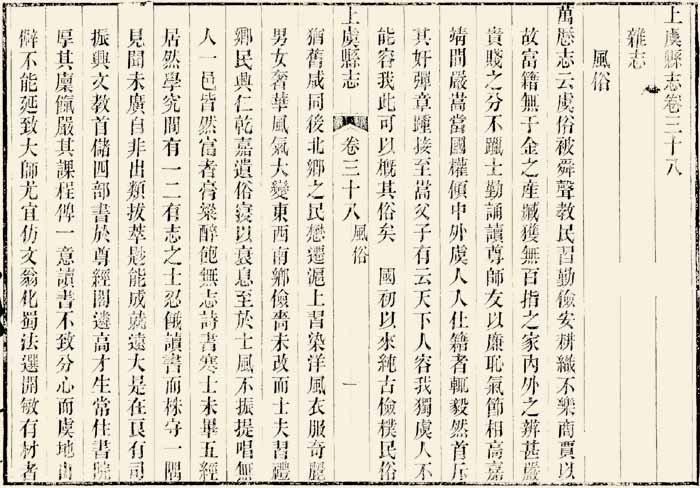 上虞縣志卷三十八
雜志
風俗
萬厯志云虞俗被舜聲教民習勤儉安耕織不樂商賈以
故富籍無千金之産臧獲無百指之家內外之辨甚嚴
貴賤之分不躐士勤誦讀尊師友以廉恥氣節相高嘉
靖間嚴嵩當國權傾中外虞人人仕籍者輒毅然首斥
其奸彈章踵接至嵩父子有云天下人容我獨虞人不
能容我此可以概其俗矣　國初以來純古儉樸民俗
上虞縣志　卷三十八　風俗　一
猶舊咸同後北鄉之民懋遷滬上習染洋風衣服奇麗
男女奢華風氣大變東西南鄉儉嗇未改而士夫習禮
鄉民興仁乾嘉遺俗寖以衰息至於士風不振提唱無
人一邑皆然富者膏粱醉飽無志詩書寒士未畢五經
居然學究間有一二有志之士忍饑讀書而株守一隅
見聞未廣自非出類拔萃尟能成就遠大是在良有司
振興文教首儲四部書於尊經閣遴高才生常住書院
厚其廩餼嚴其課程俾一意讀書不致分心而虞地由
僻不能延致大師尤宜仿文翁化蜀法選開敏有材者